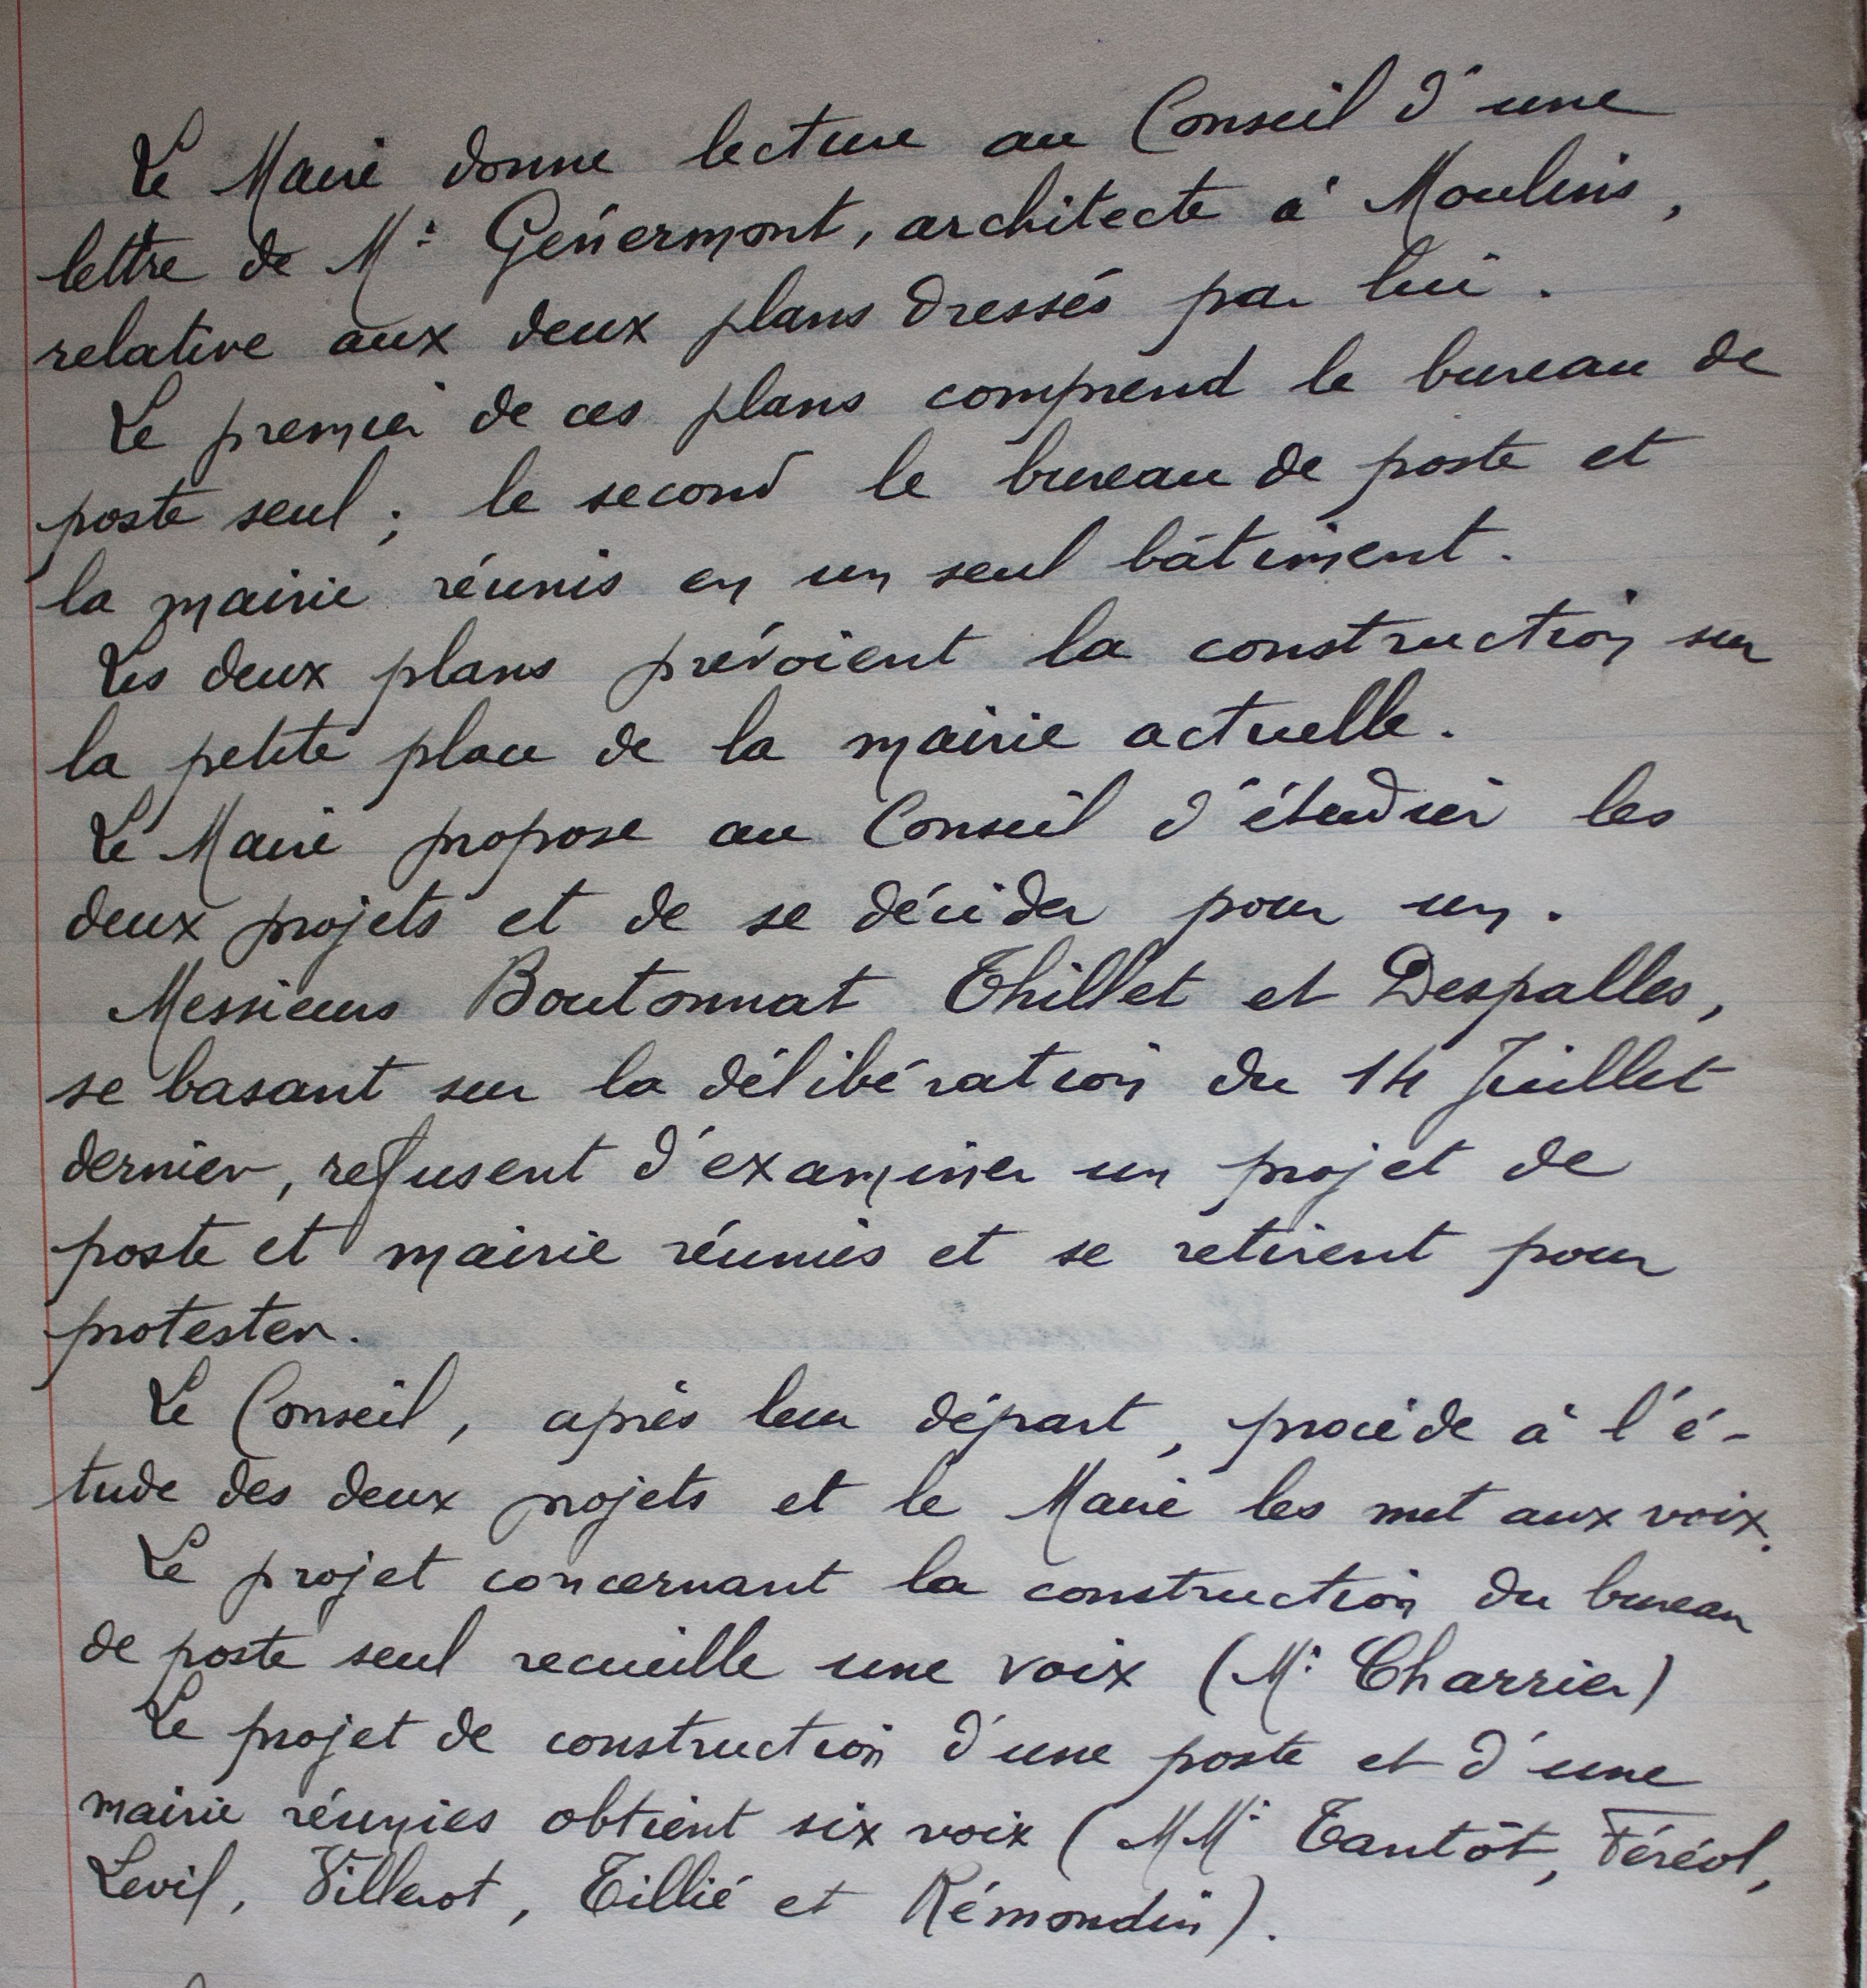 Le Maire donne lecture au Conseil d'une
lettre de Mr Génermont, architecte à Moulins,
relative aux deux plans dressés par lui.
Le premier de ces plans comprend le bureau de
poste seul ; le second le bureau de poste et
la mairie réunis en un seul bâtiment.
Les deux plans prévoient la construction sur
la petite place de la mairie actuelle.
Le Maire propose au Conseil d'étudier les
deux projets et de se décider pour un.
Messieurs Boutonnat Thillet et Despalles,
se basant sur la délibération du 14 Juillet
dernier, refusent d'examiner un projet de
poste et mairie réunies et se retirent pour
protester.
Le Conseil, après leur départ, procède à l'é-
tude des deux projets et le Maire les met aux voix.
Le projet concernant la construction du bureau
de poste seul recueille une voix (Mr Charrier)
Le projet de construction d'une poste et d'une
mairie réunies obtient six voix (MMr Tantôt, Féréol,
Levif, Villerot, Tillié et Rémondin).